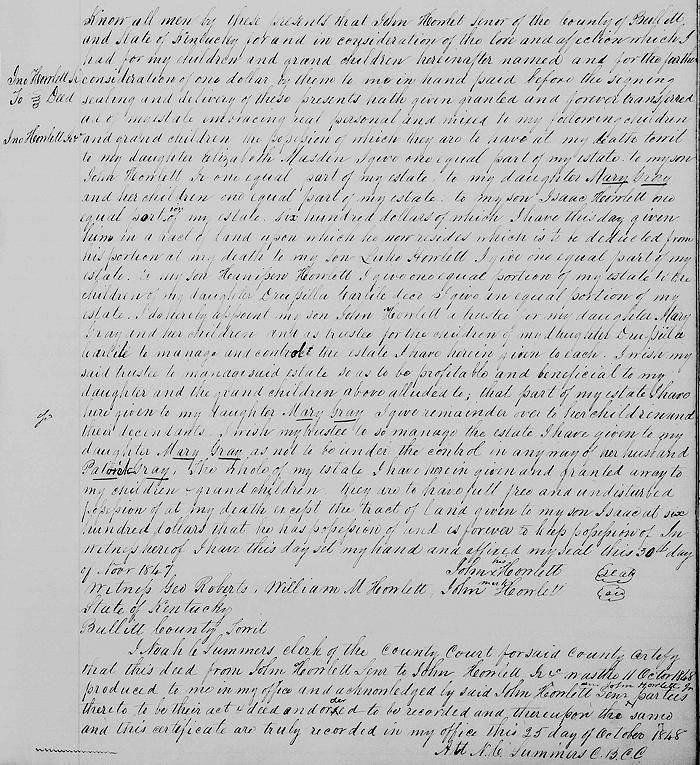 Know all men by these presents that John Howlett Senor of the County of Bullitt
and State of Kentucky for and in consideration of the love and affection which I
had for my children and grand children hereinafter named and for the further
Jno Howlett Sr
consideration of one dollar by them to me in hand paid before the signing
To Deed
sealing and delivery of these presents hath given granted and forever transferred
all of my estate embracing real personal and mixed to my following children
Jno Howlett Jr
and grand children the possession of which they are to have at my death towit
to my daughter Elizabeth Masden I give one equal part of my estate. to my son
John Howlett Jr one equal part of my estate. to my daughter Mary Gray
and her children one equal part of my estate. to my son Isaac Howlett one
equal part of my estate. six hundred dollars of which I have this day given
him in a tract of land upon which he now resides which is to be deducted from
his portion at my death to my son Luke Howlett I give one equal part of my
estate. to my son Howlett I give one equal portion of my estate to the
children of my daughter Druspilla decd I give an equal portion of my
estate. I do hereby appoint my son John Howlett a trustee for my daughter Mary
Gray and her children and as trustee for the children of my daughter Druspilla
to manage and controlt the estate I have herein given to each. I wish my
said trustee to manage said estate so as to be profitable and beneficial to my
daughter and the grand children above alluded to; that part of my estate I have
here given to my daughter Mary Gray I give remainder over to her children and
their decendants. I wish my trustee to so manage the estate I have given to my
daughter Mary Gray as not to be under the control in any way of her husband
Gray. The whole of my estate I have herein given and granted away to
my children & grand children. they are to have full free and undisturbed
possession of at my death except the tract of land given to my son Isaac at six
hundred dollars that he has possession of and is forever to keep possession of. In
witness hereof I have this day set my hand and affixed my seal this 30th day
of Novr 1847
John his x mark Howlett (Seal)
Witness Geo Roberts, William M Howlett, John Howlett (Seal)
State of Kentucky
Bullitt County Towit
I Noah C Summers clerk of the County Court for said County certify
that this deed from John Howlett Senr to John Howlett Jr &c was the 11 Octor 1848
produced to me in my office and acknowledged by said John Howlett Senr and John Howlett Jr parties
thereto to be their act & deed and ordered to be recorded and thereupon the same
and this certificate are truly recorded in my office this 25 day of October 1848
Att N.C. Summers C.B.C.C.